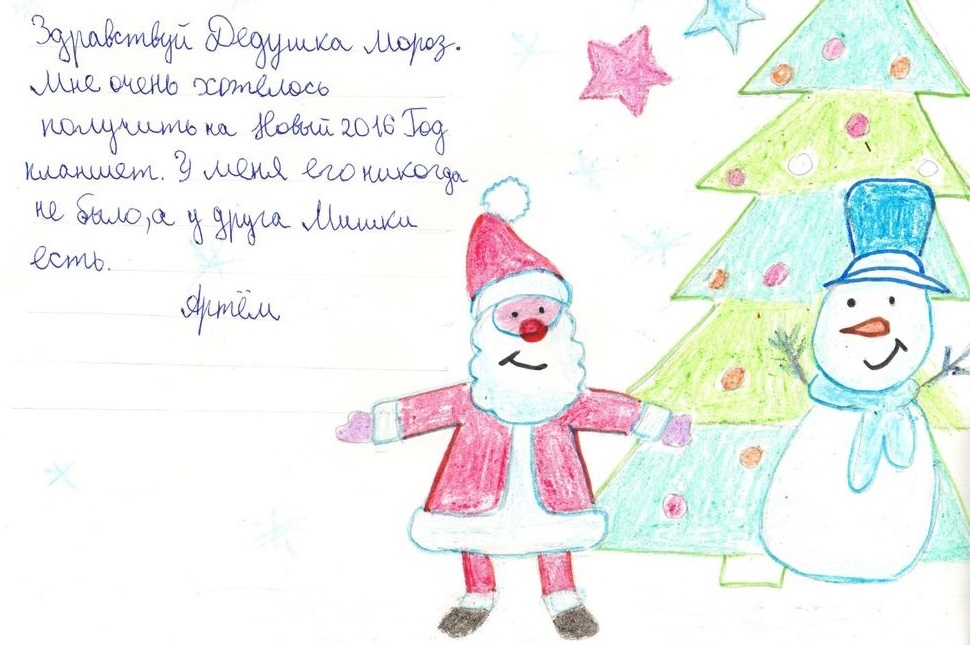 Здравствуй Дедушка Мороз.
Мне очень хотелось
получить на Новый 2016 Год
планшет. У меня его никогда
не было, а у друга Мишки
есть.
Артём